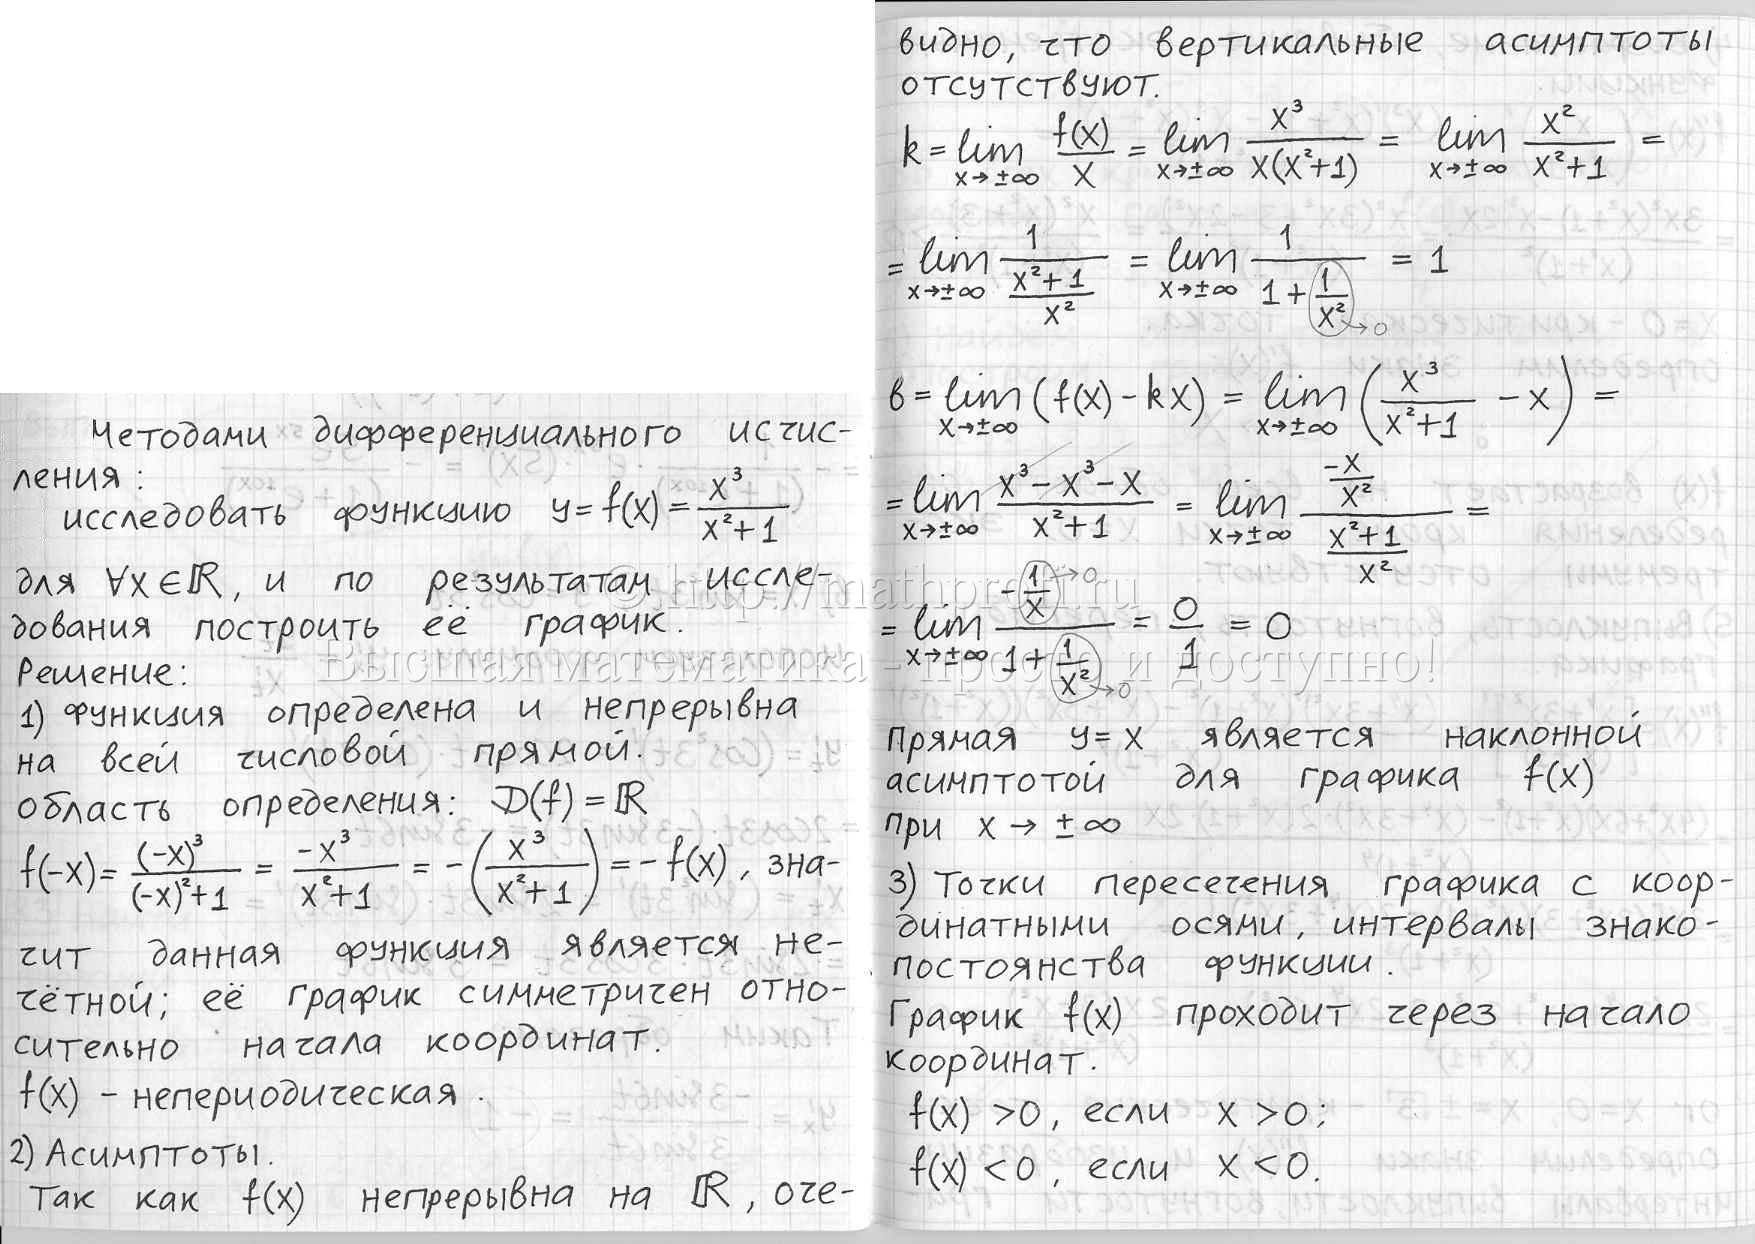 Методами дифференциального исчис-
ления:
исследовать функцию y = f(x) = x³/(x²+1)
для ∀x∈ℝ, и по результатам иссле-
дования построить её график.
Решение:
1) Функция определена и непрерывна
на всей числовой прямой.
область определения: D(f) = ℝ
f(-x) = (-x)³/((-x)²+1) = -x³/(x²+1) = -(x³/(x²+1)) = -f(x), зна-
чит данная функция является не-
чётной; её график симметричен отно-
сительно начала координат.
f(x) - непериодическая.
2) Асимптоты.
Так как f(x) непрерывна на ℝ, оче-
видно, что вертикальные асимптоты
отсутствуют.
k = lim x→±∞ f(x)/x = lim x→±∞ x³/(x(x²+1)) = lim x→±∞ x²/(x²+1) =
= lim x→±∞ 1/((x²+1)/x²) = lim x→±∞ 1/(1+1/x²) →0 = 1
b = lim x→±∞ (f(x) - kx) = lim x→±∞ (x³/(x²+1) - x) =
= lim x→±∞ (x³-x³-x)/(x²+1) = lim x→±∞ (-x/x²)/((x²+1)/x²) =
= lim x→±∞ (-1/x →0)/(1+1/x² →0) = 0/1 = 0
прямая y = x является наклонной
асимптотой для графика f(x)
при x → ±∞
3) Точки пересечения графика с коор-
динатными осями, интервалы знако-
постоянства функции.
График f(x) проходит через начало
координат.
f(x) > 0, если x > 0;
f(x) < 0, если x < 0.
© http://mathprofi.ru
Высшая математика - просто и доступно!